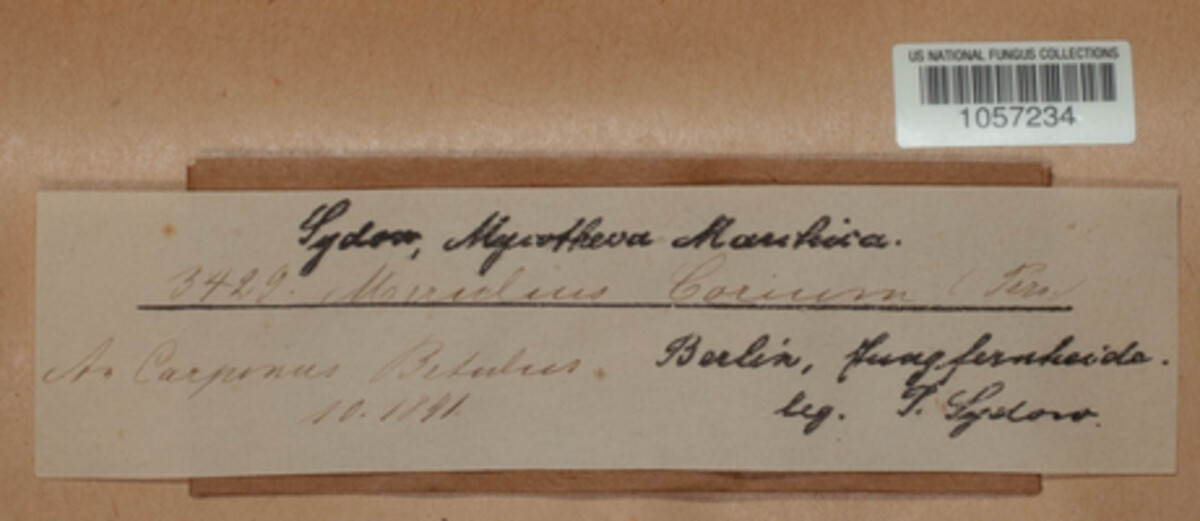 US NATIONAL FUNGUS COLLECTIONS
1057234
Sydow, Mycotheca Marchica.
3429. Merulius Corium (Pers)
An Carpinus Betulus.
10. 1891.
Berlin, Jungfernheide.
leg. P. Sydow.